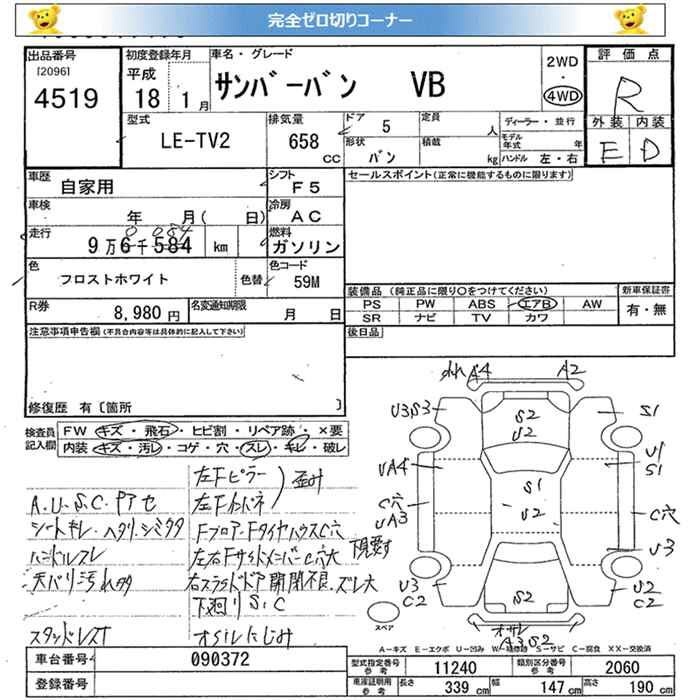 完全ゼロ切りコーナー
出品番号
[2096]
4519
初度登録年月
平成
18 1月
車名・グレード
サンバーバン VB
2WD
・
4WD
評価点
R
外装 内装
E D
型式
LE-TV2
排気量
658
CC
ドア 5
形状
バン
定員 人
積載 kg
ディーラー・並行
モデル年式 年
ハンドル 左・右
車歴
自家用
シフト
F5
セールスポイント(正常に機能するものに限ります)
車検
年 月( 日)
冷房
AC
走行
8 084
9万6千584 km
燃料
ガソリン
色
フロストホワイト
色替
色コード
59M
装備品 (純正品に限り○をつけてください)
PS PW ABS エアB AW
SR ナビ TV カワ
新車保証書
有・無
R券
8,980 円
名変通知期限
月 日
後日品
注意事項申告欄(不具合内容等は具体的に記入して下さい)
修復歴 有〔箇所 〕
検査員記入欄
FW キズ・飛石・ヒビ割・リペア跡・×要
内装 キズ・汚レ・コゲ・穴・スレ・キレ・破レ
左Fピラー
左Fインパネ
歪み
A.U.S.C.
シートキレ・ヘタリ・シミタタ
ハンドルスレ
天バリ汚れタタ
スタッドレス
Fフロア・FタイヤハウスC穴
左右FサイドメンバーC穴大
下見要す
右スライドドア開閉不良・ズレ大
下廻りS.C
オイルにじみ
A4 A2
U3S3 S2 U2 S1
UA4 U1 S1
S1 U2
C穴 UA3 C穴
U3
U3 C2 S2 U2 C2
オサレ
A3S2
スペア
A-キズ E-エクボ U-凹み W-補修跡 S-サビ C-腐食 XX-交換済
車台番号
090372
登録番号
型式指定番号
参考
11240
類別区分番号
参考
2060
車庫証明用
参考
長さ 339 cm 幅 147 cm 高さ 190 cm